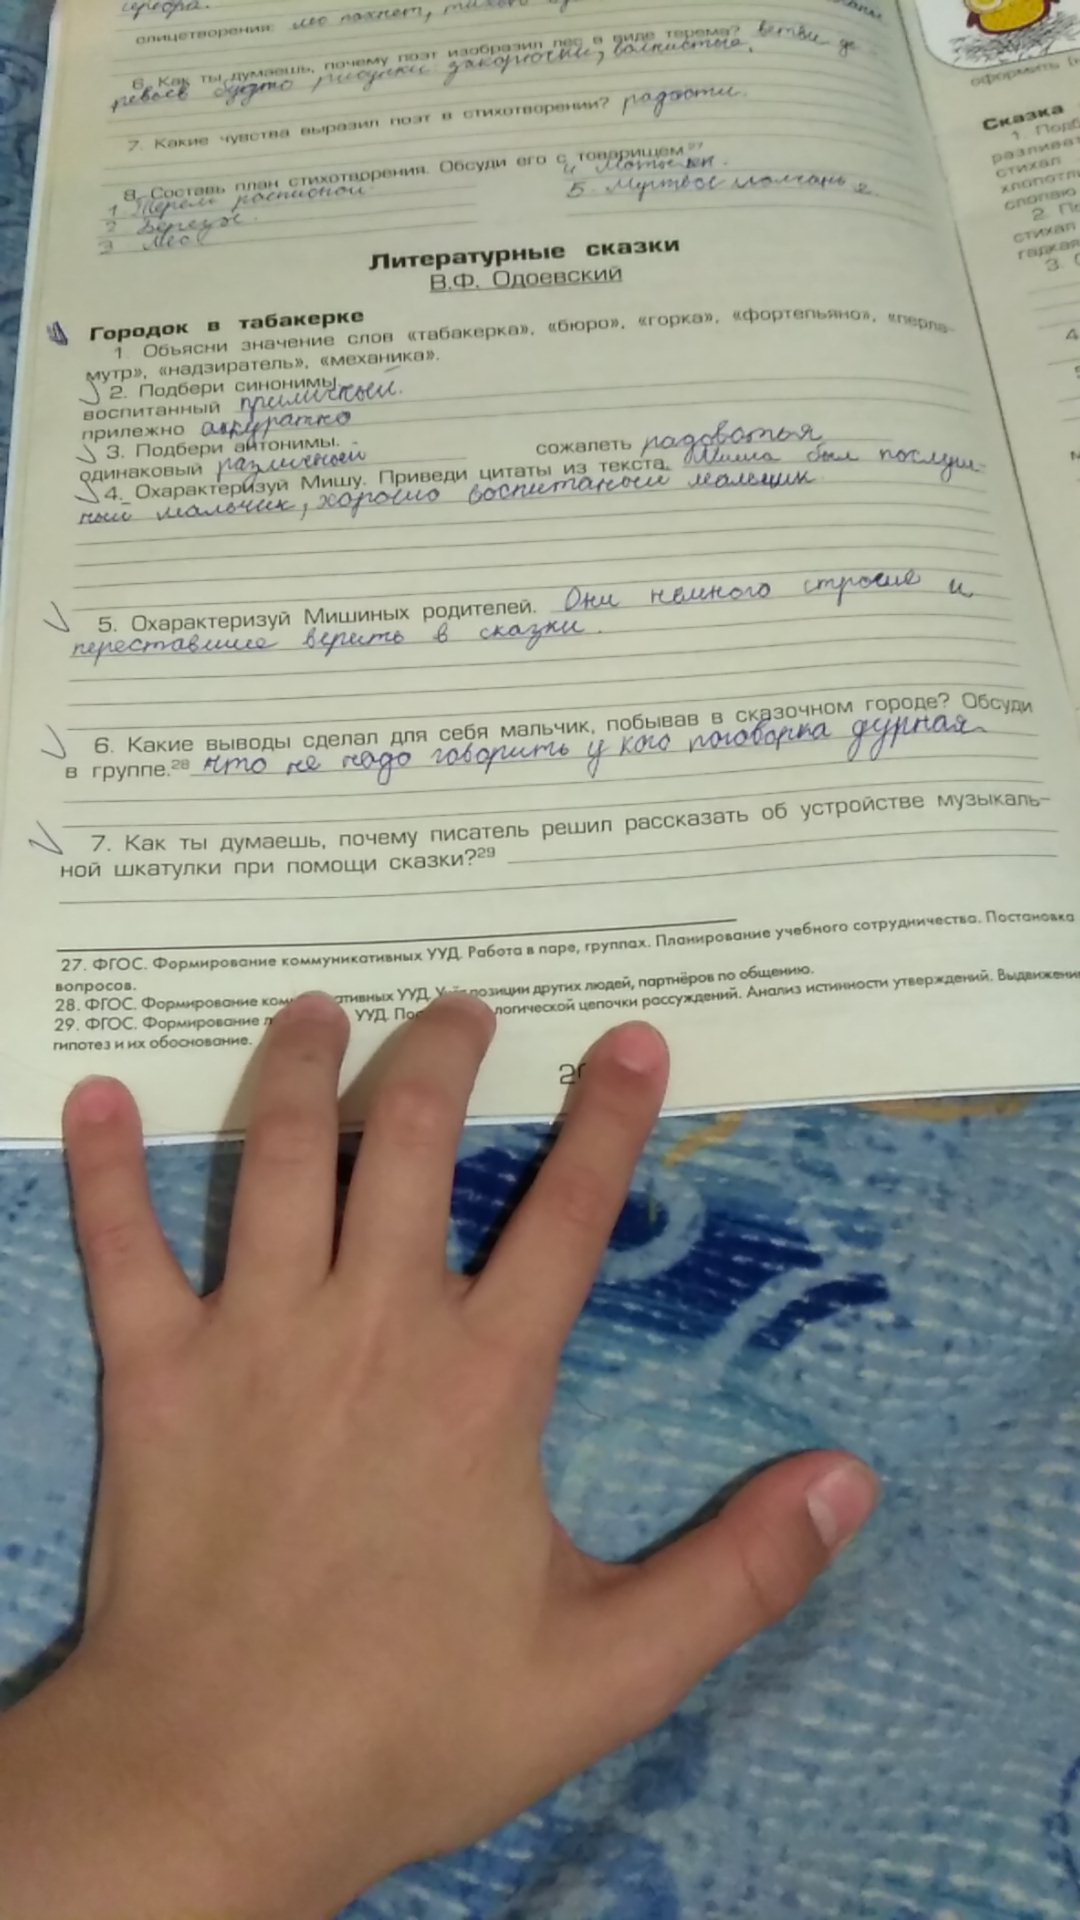 серебра.
олицетворения: лес пахнет,
6. Как ты думаешь, почему поэт изобразил лес в виде терема? ветви де
ревьев будто рисунки закорючки, волнистые.
7. Какие чувства выразил поэт в стихотворении? радости.
8. Составь план стихотворения. Обсуди его с товарищем.27
1 Терем расписной.
4
2 Березы.
5. Мертвое молчань е.
3 Лес
Литературные сказки
В.Ф. Одоевский
Городок в табакерке
1. Объясни значение слов «табакерка», «бюро», «горка», «фортепьяно», «перла-
мутр», «надзиратель», «механика».
2. Подбери синонимы.
воспитанный приличный.
прилежно аккуратно
3. Подбери антонимы.
одинаковый различный сожалеть радоваться
4. Охарактеризуй Мишу. Приведи цитаты из текста. Миша был послуш-
ный мальчик, хорошо воспитаный мальчик
5. Охарактеризуй Мишиных родителей. Они немного строгие и
переставшие верить в сказки.
6. Какие выводы сделал для себя мальчик, побывав в сказочном городе? Обсуди
в группе.28 что не надо говорить у кого поговорка дурная
7. Как ты думаешь, почему писатель решил рассказать об устройстве музыкаль-
ной шкатулки при помощи сказки?29
27. ФГОС. Формирование коммуникативных УУД. Работа в паре, группах. Планирование учебного сотрудничества. Постановка
вопросов.
28. ФГОС. Формирование ком ативных УУД. позиции других людей, партнёров по общению.
29. ФГОС. Формирование УУД. логической цепочки рассуждений. Анализ истинности утверждений. Выдвижение
гипотез и их обоснование.
оформить
Сказка
1. Подб
разливат
стихал
хлопотл
слопаю
2. По
стихал
гадкая
3.
4